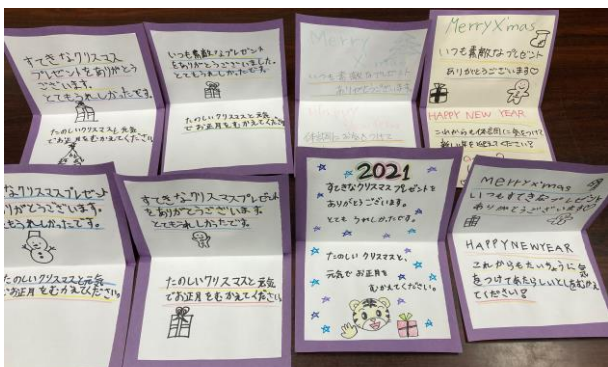 すてきなクリスマス
プレゼントをありがとう
ございます。
とてもうれしかったです。
たのしいクリスマスと元気
でお正月をむかえてください
いつも素敵なプレゼント
をありがとうございました。
とてもうれしかったです。
たのしいクリスマスと元気
でお正月をむかえてください
Merry
X'mas
いつも素敵なプレゼント
ありがとうございます
Merry X'mas
いつも素敵なプレゼント
ありがとうございます♡
HAPPY NEW YEAR
これからも体調に気をつけて
新しい年を迎えてください!
クリスマスプレゼント
ありがとうございます。
もうれしかったです。
たのしいクリスマスと元気
お正月をむかえてください。
すてきなクリスマスプレゼント
をありがとうございます。
とてもうれしかったです。
たのしいクリスマスと元気
でお正月をむかえてください
2021
すてきなクリスマスプレゼントを
ありがとうございます。
とても うれしかったです。
たのしい クリスマスと、
元気で お正月を
むかえてください。
Merry x'mas
いつもすてきなプレゼント
ありがとうございます
HAPPY NEW YEAR
これからもたいちょうに
をつけてあたらしいとしをむかえ
てください!